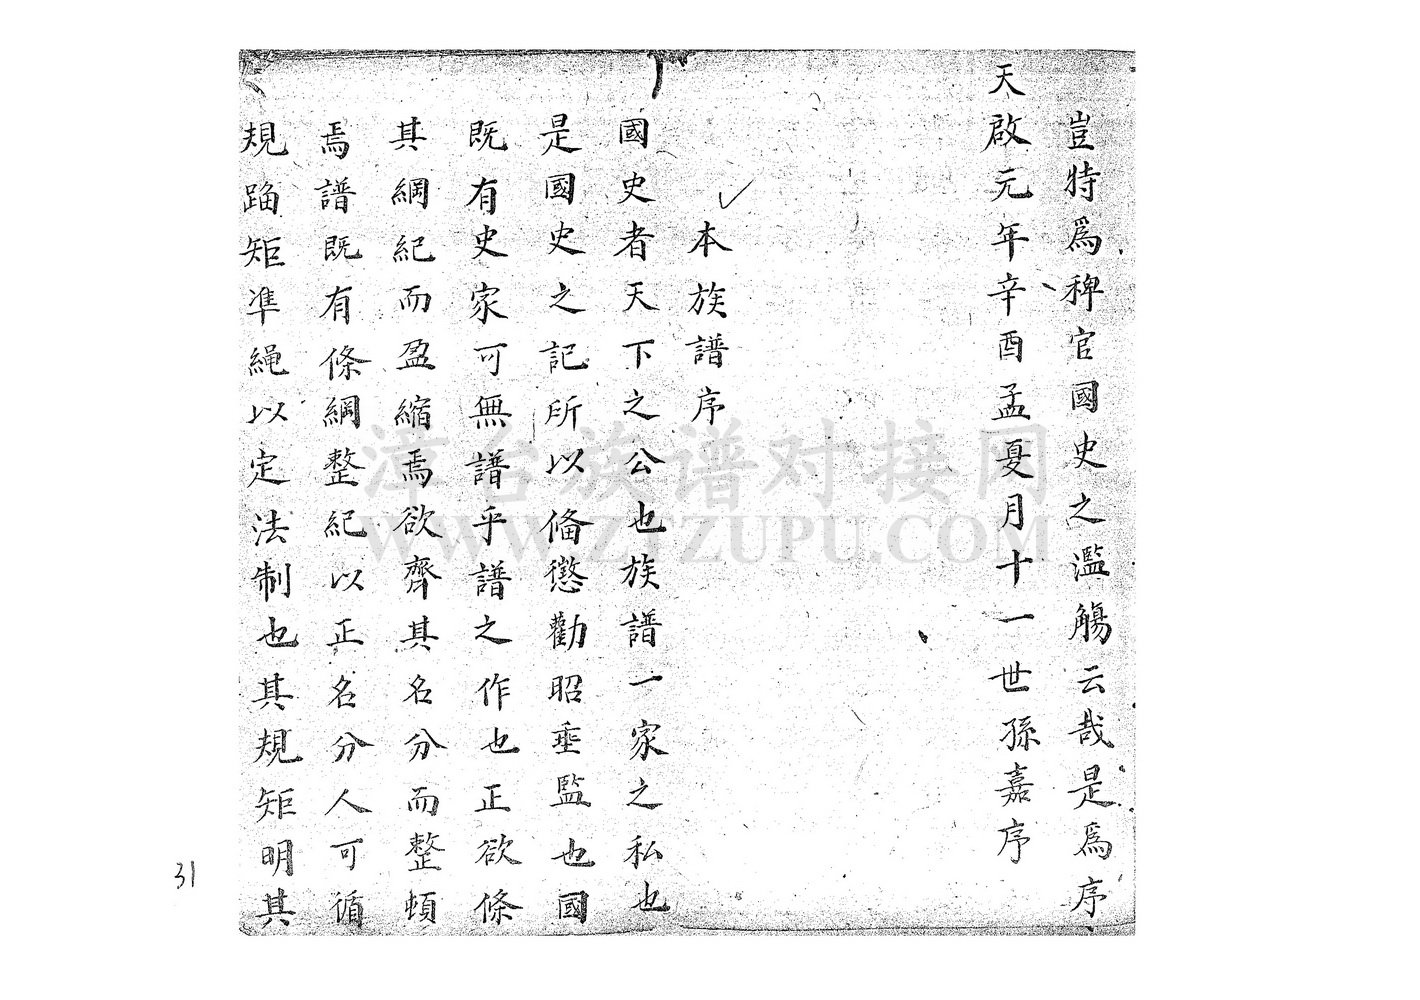 豈特爲稗官國史之濫觴云哉是爲序
天啟元年辛酉孟夏月十一世孫嘉序
本族譜序
國史者天下之公也族譜一家之私也
是國史之記所以俻懲勸昭垂監也國
既有史家可無譜乎譜之作也正欲條
其綱紀而盈縮焉欲齊其名分而整頓
焉譜既有條綱整紀以正名分人可循
規蹈矩準繩以定法制也其規矩明其
漳台族谱对接网
WWW.ZTZUPU.COM
31